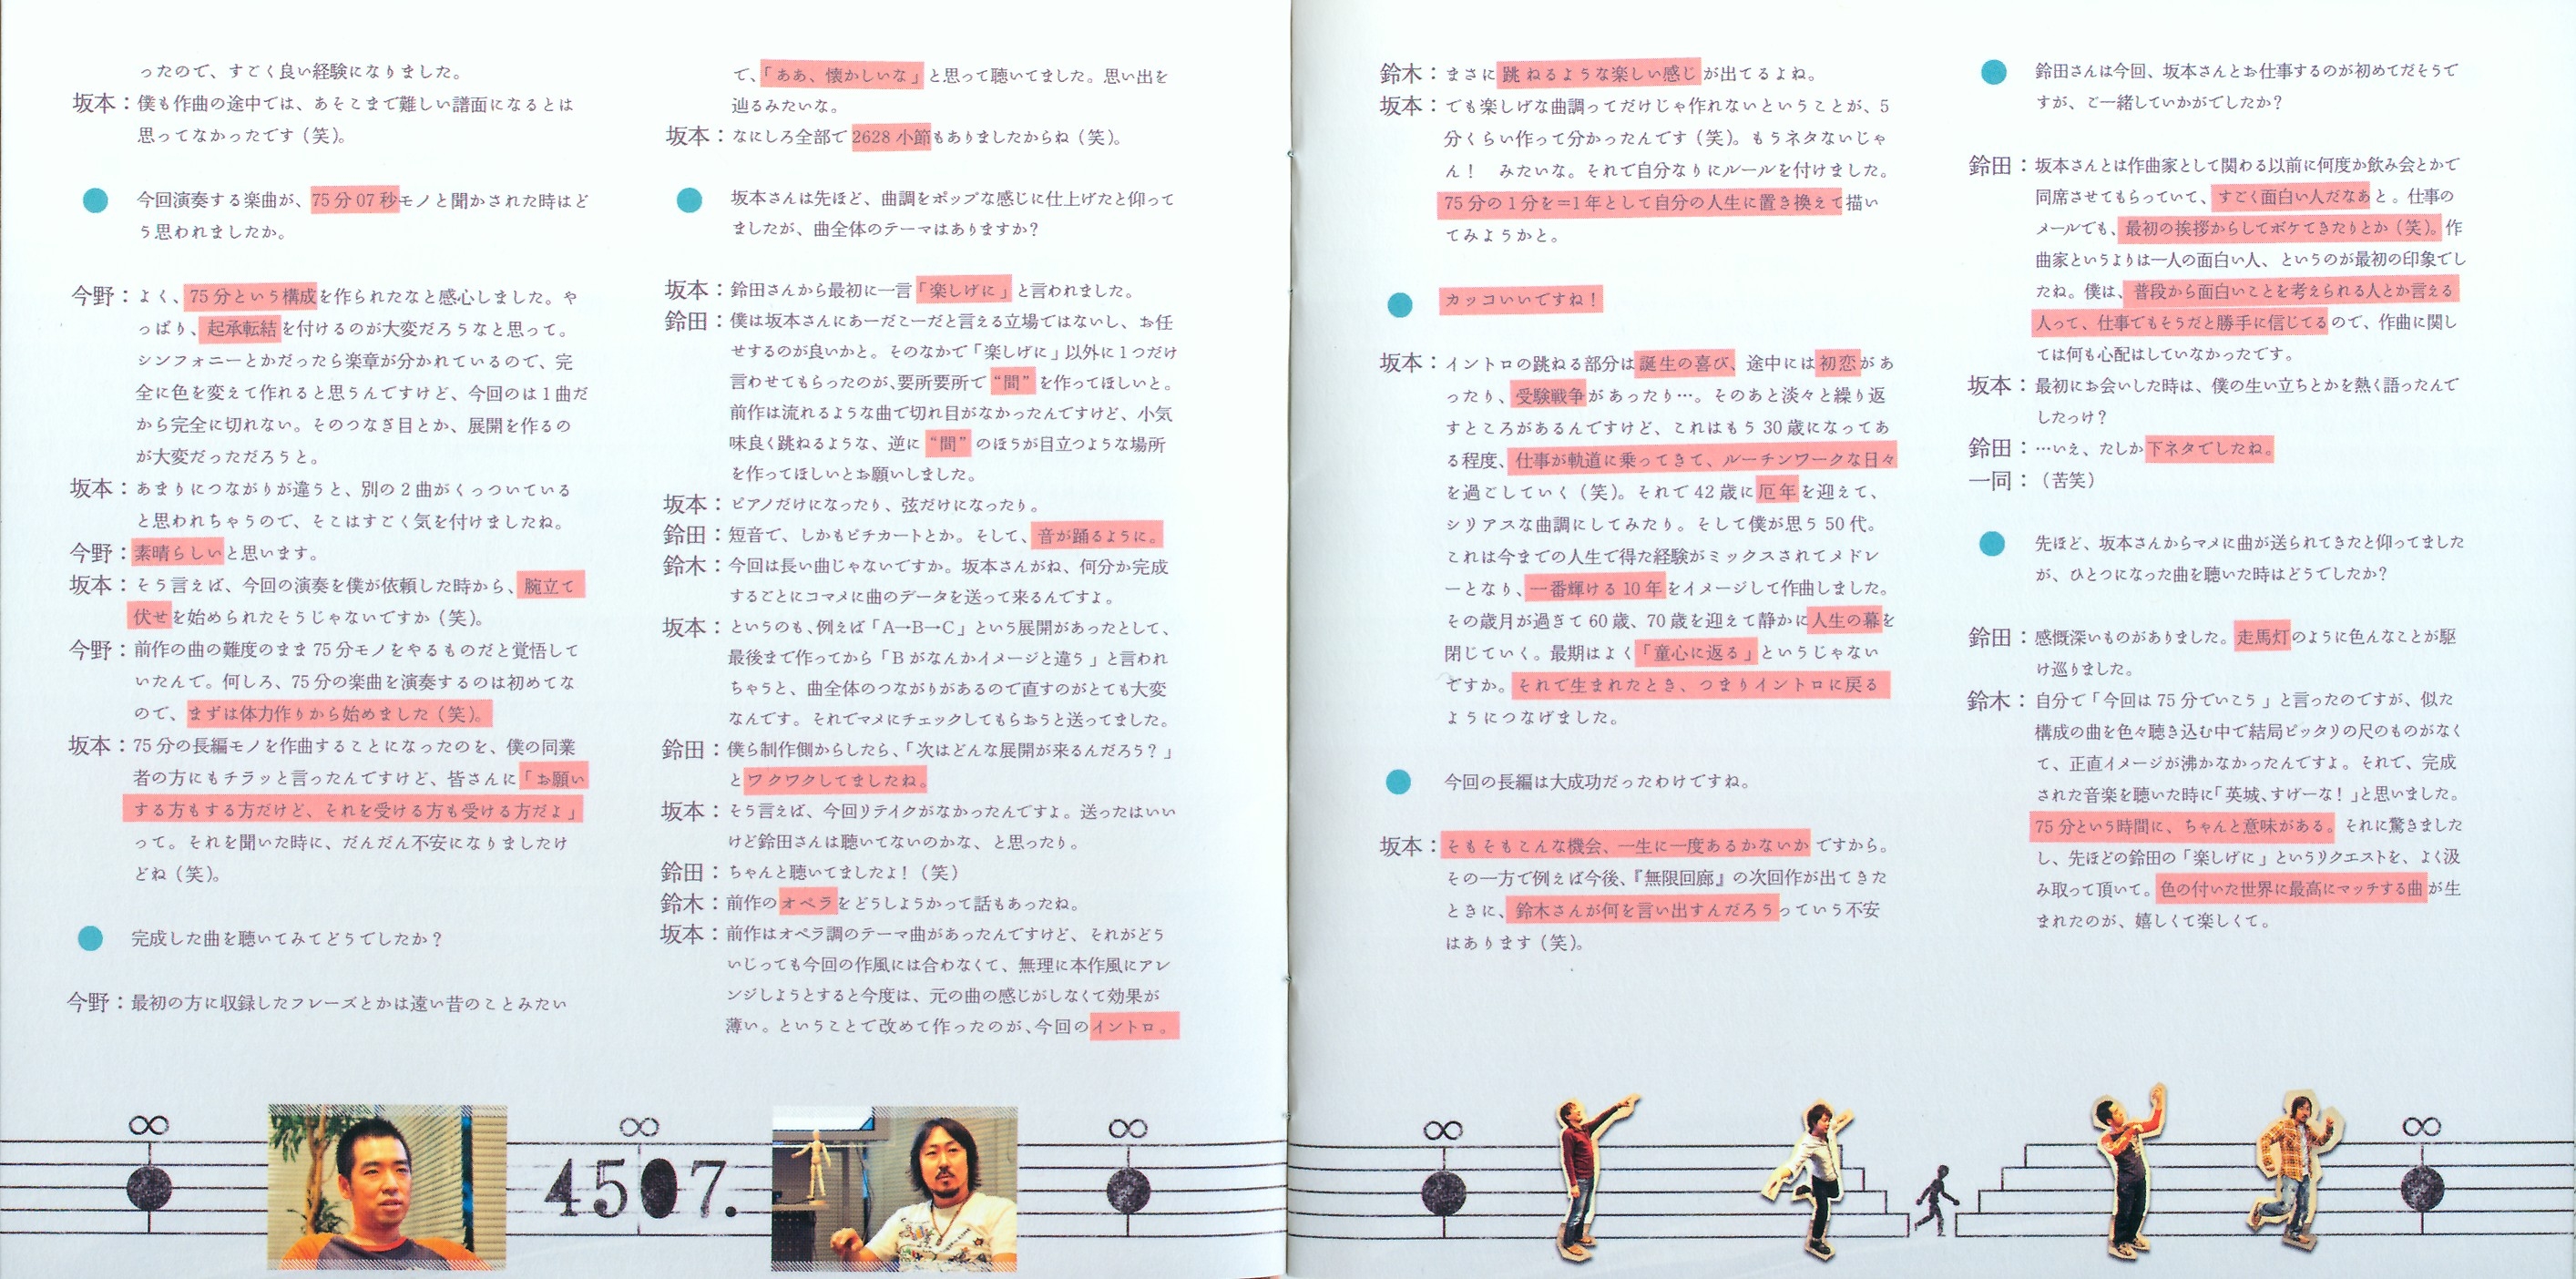 ったので、すごく良い経験になりました。
坂本：僕も作曲の途中では、あそこまで難しい譜面になるとは
思ってなかったです（笑）。
今回演奏する楽曲が、75分07秒モノと聞かされた時はど
う思われましたか。
今野：よく、75分という構成を作られたなと感心しました。や
っぱり、起承転結を付けるのが大変だろうなと思って。
シンフォニーとかだったら楽章が分かれているので、完
全に色を変えて作れると思うんですけど、今回のは1曲だ
から完全に切れない。そのつなぎ目とか、展開を作るの
が大変だっただろうと。
坂本：あまりにつながりが違うと、別の2曲がくっついている
と思われちゃうので、そこはすごく気を付けましたね。
今野：素晴らしいと思います。
坂本：そう言えば、今回の演奏を僕が依頼した時から、腕立て
伏せを始められたそうじゃないですか（笑）。
今野：前作の曲の難度のまま75分モノをやるものだと覚悟して
いたんで。何しろ、75分の楽曲を演奏するのは初めてな
ので、まずは体力作りから始めました（笑）。
坂本：75分の長編モノを作曲することになったのを、僕の同業
者の方にもチラッと言ったんですけど、皆さんに「お願い
する方もする方だけど、それを受ける方も受ける方だよ」
って。それを聞いた時に、だんだん不安になりましたけ
どね（笑）。
完成した曲を聴いてみてどうでしたか？
今野：最初の方に収録したフレーズとかは遠い昔のことみたい
て、「ああ、懐かしいな」と思って聴いてました。思い出を
辿るみたいな。
坂本：なにしろ全部で2628小節もありましたからね（笑）。
坂本さんは先ほど、曲調をポップな感じに仕上げたと仰って
ましたが、曲全体のテーマはありますか？
坂本：鈴田さんから最初に一言「楽しげに」と言われました。
鈴田：僕は坂本さんにあーだこーだと言える立場ではないし、お任
せするのが良いかと。そのなかで「楽しげに」以外に1つだけ
言わせてもらったのが、要所要所で“間”を作ってほしいと。
前作は流れるような曲で切れ目がなかったんですけど、小気
味良く跳ねるような、逆に“間”のほうが目立つような場所
を作ってほしいとお願いしました。
坂本：ピアノだけになったり、弦だけになったり。
鈴田：短音で、しかもピチカートとか。そして、音が踊るように。
鈴木：今回は長い曲じゃないですか。坂本さんがね、何分か完成
するごとにコマメに曲のデータを送って来るんですよ。
坂本：というのも、例えば「A→B→C」という展開があったとして、
最後まで作ってから「Bがなんかイメージと違う」と言われ
ちゃうと、曲全体のつながりがあるので直すのがとても大変
なんです。それでマメにチェックしてもらおうと送ってました。
鈴田：僕ら制作側からしたら、「次はどんな展開が来るんだろう？」
とワクワクしてましたね。
坂本：そう言えば、今回リテイクがなかったんですよ。送ったはいい
けど鈴田さんは聴いてないのかな、と思ったり。
鈴田：ちゃんと聴いてましたよ！（笑）
鈴木：前作のオペラをどうしようかって話もあったね。
坂本：前作はオペラ調のテーマ曲があったんですけど、それがどう
いじっても今回の作風には合わなくて、無理に本作風にアレ
ンジしようとすると今度は、元の曲の感じがしなくて効果が
薄い。ということで改めて作ったのが、今回のイントロ。
4507.
鈴木：まさに跳ねるような楽しい感じが出てるよね。
坂本：でも楽しげな曲調ってだけじゃ作れないということが、5
分くらい作って分かったんです（笑）。もうネタないじゃ
ん！　みたいな。それで自分なりにルールを付けました。
75分の1分を＝1年として自分の人生に置き換えて描い
てみようかと。
カッコいいですね！
坂本：イントロの跳ねる部分は誕生の喜び、途中には初恋があ
ったり、受験戦争があったり…。そのあと淡々と繰り返
すところがあるんですけど、これはもう30歳になってあ
る程度、仕事が軌道に乗ってきて、ルーチンワークな日々
を過ごしていく（笑）。それで42歳に厄年を迎えて、
シリアスな曲調にしてみたり。そして僕が思う50代。
これは今までの人生で得た経験がミックスされてメドレ
ーとなり、一番輝ける10年をイメージして作曲しました。
その歳月が過ぎて60歳、70歳を迎えて静かに人生の幕を
閉じていく。最期はよく「童心に返る」というじゃない
ですか。それで生まれたとき、つまりイントロに戻る
ようにつなげました。
今回の長編は大成功だったわけですね。
坂本：そもそもこんな機会、一生に一度あるかないかですから。
その一方で例えば今後、『無限回廊』の次回作が出てきた
ときに、鈴木さんが何を言い出すんだろうっていう不安
はあります（笑）。
鈴田さんは今回、坂本さんとお仕事するのが初めてだそうで
すが、ご一緒していかがでしたか？
鈴田：坂本さんとは作曲家として関わる以前に何度か飲み会とかで
同席させてもらっていて、すごく面白い人だなあと。仕事の
メールでも、最初の挨拶からしてボケてきたりとか（笑）。作
曲家というよりは一人の面白い人、というのが最初の印象でし
たね。僕は、普段から面白いことを考えられる人とか言える
人って、仕事でもそうだと勝手に信じてるので、作曲に関し
ては何も心配はしていなかったです。
坂本：最初にお会いした時は、僕の生い立ちとかを熱く語ったんで
したっけ？
鈴田：…いえ、たしか下ネタでしたね。
一同：（苦笑）
先ほど、坂本さんからマメに曲が送られてきたと仰ってました
が、ひとつになった曲を聴いた時はどうでしたか？
鈴田：感慨深いものがありました。走馬灯のように色んなことが駆
け巡りました。
鈴木：自分で「今回は75分でいこう」と言ったのですが、似た
構成の曲を色々聴き込む中で結局ピッタリの尺のものがなく
て、正直イメージが沸かなかったんですよ。それで、完成
された音楽を聴いた時に「英城、すげーな！」と思いました。
75分という時間に、ちゃんと意味がある。それに驚きました
し、先ほどの鈴田の「楽しげに」というリクエストを、よく汲
み取って頂いて。色の付いた世界に最高にマッチする曲が生
まれたのが、嬉しくて楽しくて。